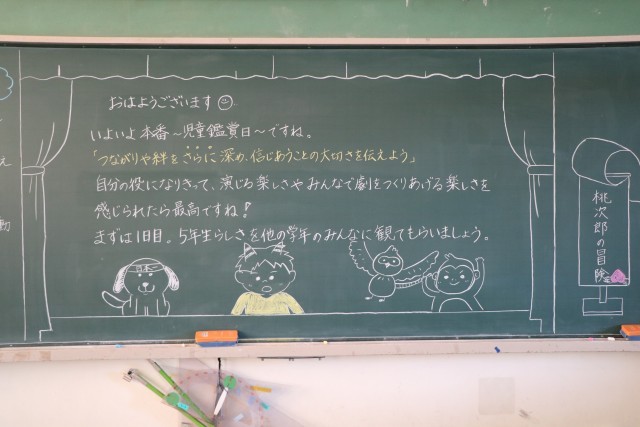 おはようございます
いよいよ本番～児童鑑賞日～ですね。
「つながりや絆をさらに深め、信じあうことの大切さを伝えよう」
自分の役になりきって、演じる楽しさやみんなで劇をつくりあげる楽しさを
感じられたら最高ですね!
まずは1日目。5年生らしさを他の学年のみんなに観てもらいましょう。
日本一
桃次郎の冒険
え
動